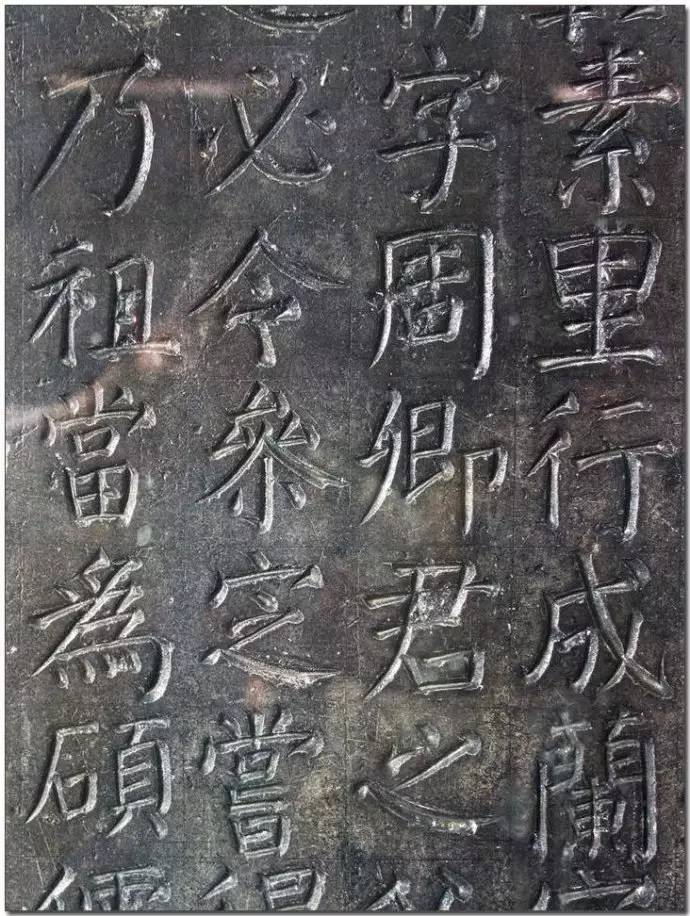 素里行成蘭
字周卿君之
必令叅定嘗
乃祖當為碩